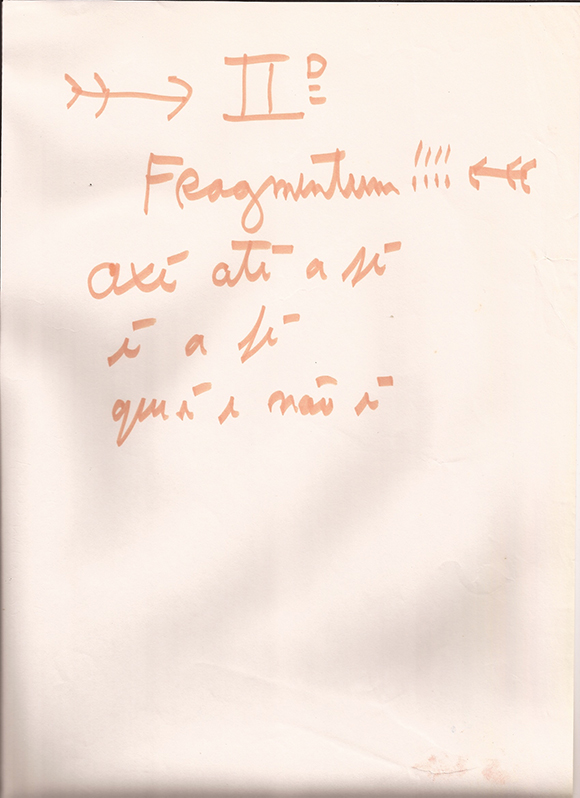 II D
Fragmentum !!!!
axé até a fé
é a fé
que é e não é